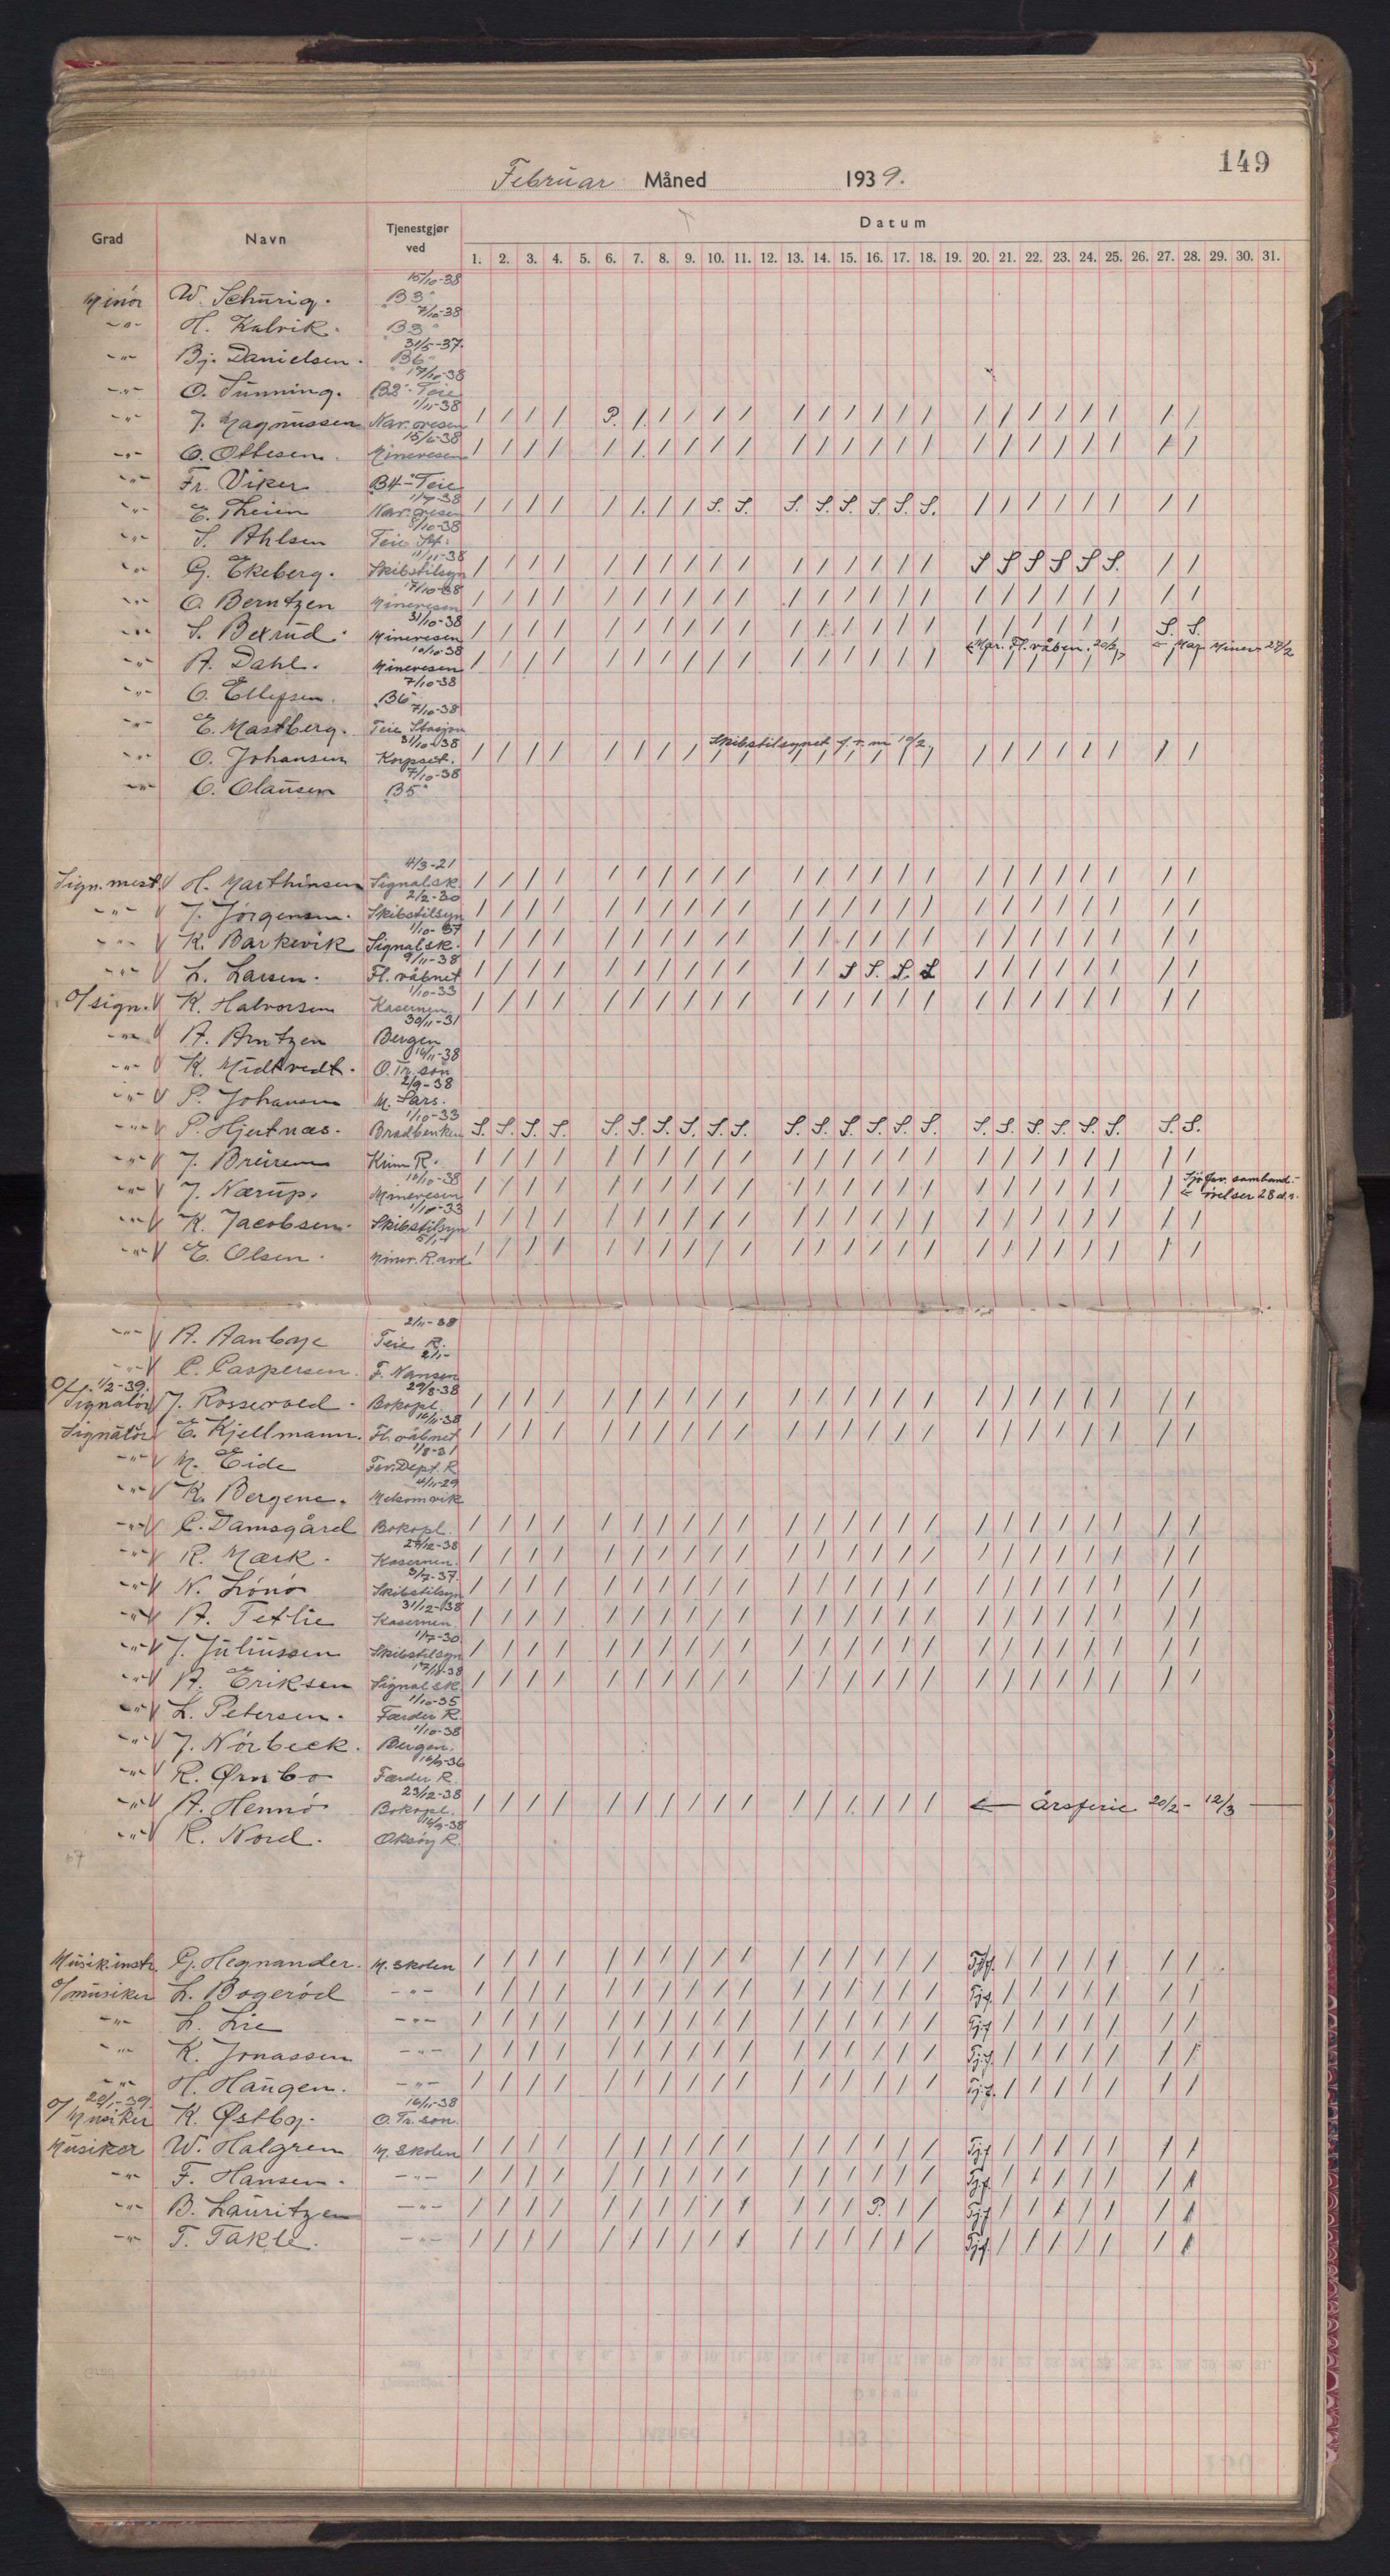 149
Februar Måned 1939.
Grad Navn Tjenestgjør ved Datum
1. 2. 3. 4. 5. 6. 7. 8. 9. 10. 11. 12. 13. 14. 15. 16. 17. 18. 19. 20. 21. 22. 23. 24. 25. 26. 27. 28. 29. 30. 31.
15/10-38
Minör W. Schürig. "B3"
7/10-38
-"- H. Kalvik. "B3"
31/5-37.
-"- Bj. Danielsen. "B6"
17/10-38
-"- O. Sünning. "B2"- Teie
1/11-38
-"- J. Magnüssen Nav. vesen / / / / P. / / / / / / / / / / / / / / / / / / /
15/6-38
-"- O. Ottesen. Minevesen / / / / / / / / / / / / / / / / / / / / / / / /
-"- Fr. Viker "B4"-Teie
1/7-38
-"- E. Theien Nav. vesen / / / / / / / / S. S. S. S. S. S. S. S. / / / / / / / /
8/10-38
-"- S. Ahlsen Teie St:
11/11-38
-"- G. Ekeberg. Skibstilsyn / / / / / / / / / / / / / / / / S S S S S S. / /
17/10-38
-"- O. Berntzen Minevesen / / / / / / / / / / / / / / / / / / / / / / / /
31/10-38
-"- S. Bexrüd. Minevesen / / / / / / / / / / / / / / / / / / / / / / S. S.
10/10-38
-"- A. Dahl. Minevesen / / / / / / / / / / / / / / / / ← Mar. Fl. våben. 20/2 → / / / / / / ← Mar Miner 27/2 / /
7/10-38
-"- O. Ellefsen. "B6"
7/10-38
-"- E. Mastberg. Teie Stasjon
31/10-38
-"- O. Johansen Korpset. / / / / / / / / Skibstilsynet f. o. m 10/2 / / / / / / / / / / / / / / / /
7/10-38
-"- O. Olaüsen "B5"
4/3-21
Sign. mest. H. Marthinsen Signalsk. / / / / / / / / / / / / / / / / / / / / / / / /
2/2-30
-"- J. Jörgensen. Skibstilsyn / / / / / / / / / / / / / / / / / / / / / / / /
1/10-37
-"- K. Barkevik Signalsk. / / / / / / / / / / / / / / / / / / / / / / / /
9/11-38
-"- L. Larsen. Fl. våbnet / / / / / / / / / / / / S S. S. S / / / / / / / /
1/10-33
O/sign. K. Halvorsen Kasernen / / / / / / / / / / / / / / / / / / / / / / / /
30/11-31
-"- A. Arntzen Bergen
16/11-38
-"- K. Midtvedt. O. Tr. søn
2/9-38
-"- P. Johansen M. Sars.
1/10-33
-"- P. Hjertnæs. Bradbenken S. S. S. S. S. S. S. S. S. S. S. S. S. S. S. S. S. S. S. S. S. S. S. S.
-"- J. Breirem Krim R. / / / / / / / / / / / / / / / / / / / / / / / /
10/10-38
-"- J. Nærüp. Minevesen / / / / / / / / / / / / / / / / / / / / / / / Sjöforsv. samband- ← övelser 28 d.s.
1/10-33
-"- K. Jacobsen. Skibstilsyn / / / / / / / / / / / / / / / / / / / / / / / /
-"- E. Olsen. Minev. R. avd. / / / / / / / / / / / / / / / / / / / / / / / /
2/11-38
-"- A. Aanbøe Teie R.
2/1-
-"- C. Caspersen. F. Nansen
29/8-38
O/ 1/2-39. Signatör J. Rossevold. Bokopl. / / / / / / / / / / / / / / / / / / / / / / / /
16/11-38
Signatör E. Kjellmann. Fl. våbnet / / / / / / / / / / / / / / / / / / / / / / / /
1/8-31
-"- M. Eide Fsv. Dept. R
4/11-29
-"- K. Bergene. Melsomvik
-"- C. Damsgård Bokopl. / / / / / / / / / / / / / / / / / / / / / / / /
27/12-38
-"- R. Mærk. Kasernen. / / / / / / / / / / / / / / / / / / / / / / / /
3/7-37.
-"- N. Lönö Skibstilsyn / / / / / / / / / / / / / / / / / / / / / / / /
31/12-38
-"- A. Tetlie Kasernen. / / / / / / / / / / / / / / / / / / / / / / / /
1/7-30.
-"- J. Jüliüssen Skibstilsyn / / / / / / / / / / / / / / / / / / / / / / / /
17/10-38
-"- A. Eriksen Signalsk / / / / / / / / / / / / / / / / / / / / / / / /
1/10-35
-"- L. Petersen. Færder R.
1/10-38
-"- J. Nörbeck. Bergen.
16/9-36
-"- R. Ørnbo Færder R.
23/12-38
-"- A. Hennö Bokopl. / / / / / / / / / / / / / / / / ← årsferie 20/2 - 12/3
16/9-38
-"- R. Nord. Oksöy R.
37
Müsik.instr. Gj. Hegnander. M. Skolen / / / / / / / / / / / / / / / / Tjf. / / / / / / /
O/müsiker L. Bogeröd -"- / / / / / / / / / / / / / / / / Tjf. / / / / / / /
-"- L. Lie -"- / / / / / / / / / / / / / / / / Tj.f / / / / / / /
-"- K. Jonassen -"- / / / / / / / / / / / / / / / / Tj.f. / / / / / / /
-"- H. Haügen. -"- / / / / / / / / / / / / / / / / Tj.f. / / / / / / /
20/1-39. 16/11-38
O/Müsiker K. Østby. O. Tr. søn.
Müsiker W. Halgren M. Skolen / / / / / / / / / / / / / / / / Tjf / / / / / / /
-"- F. Hansen. -"- / / / / / / / / / / / / / / / / Tjf. / / / / / / /
-"- B. Laüritzen -"- / / / / / / / / / / / / / P. / / Tjf / / / / / / /
-"- T. Takle. -"- / / / / / / / / / / / / / / / / Tjf. / / / / / / /